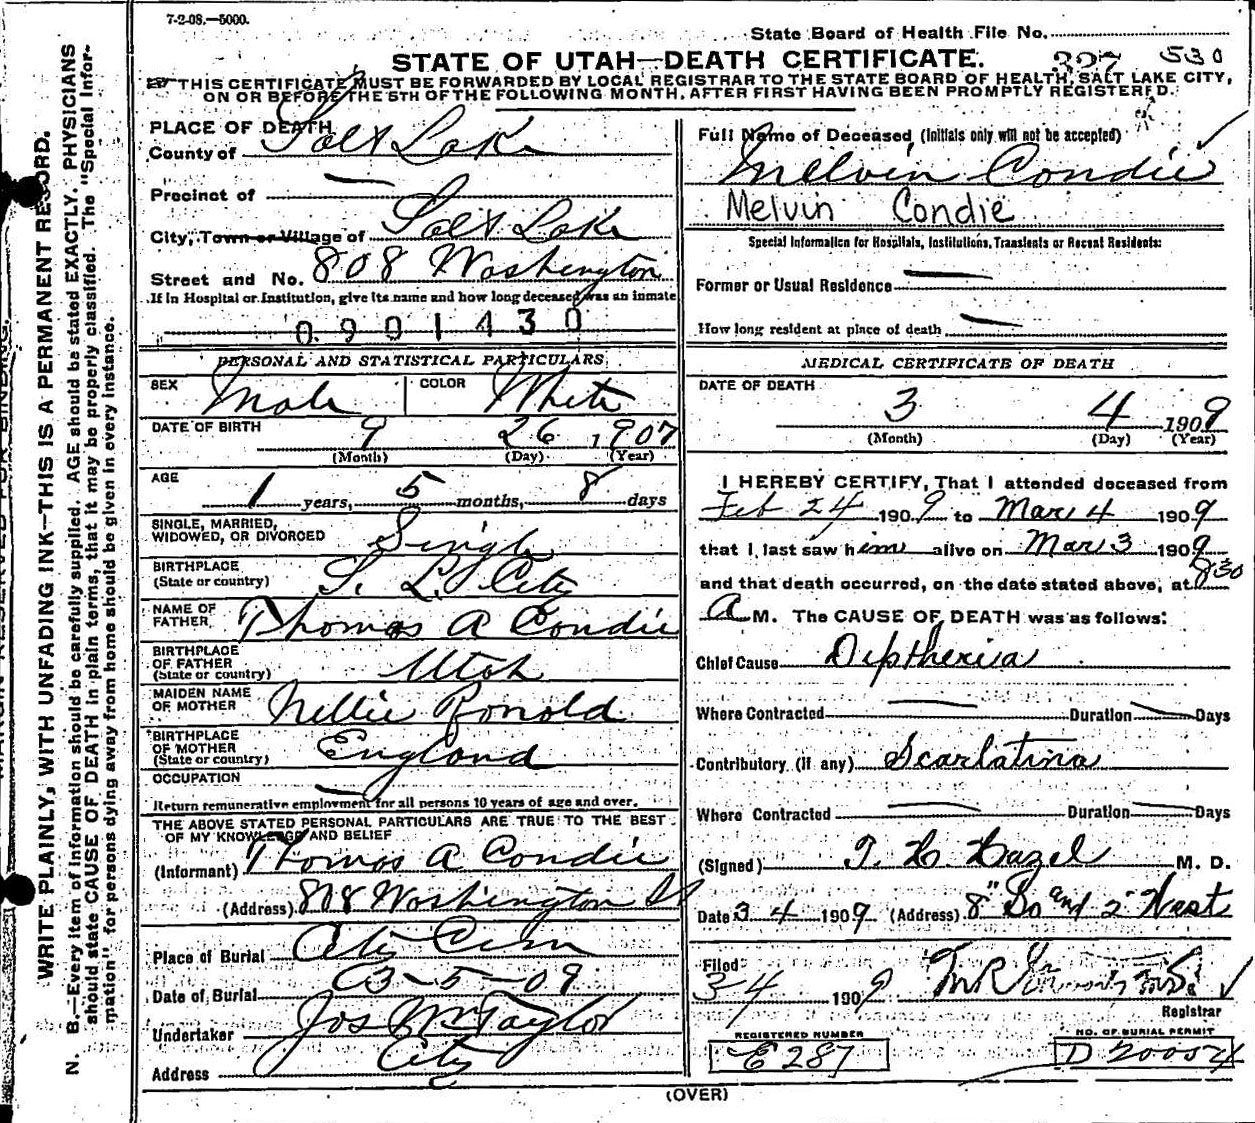 7-2-08.—5000.
State Board of Health File No.
STATE OF UTAH—DEATH CERTIFICATE. 327 530
THIS CERTIFICATE MUST BE FORWARDED BY LOCAL REGISTRAR TO THE STATE BOARD OF HEALTH, SALT LAKE CITY,
ON OR BEFORE THE 5TH OF THE FOLLOWING MONTH, AFTER FIRST HAVING BEEN PROMPTLY REGISTERED.
MARGIN RESERVED FOR BINDING.
WRITE PLAINLY, WITH UNFADING INK—THIS IS A PERMANENT RECORD.
N. B.—Every item of information should be carefully supplied. AGE should be stated EXACTLY. PHYSICIANS
should state CAUSE OF DEATH in plain terms, that it may be properly classified. The "Special Infor-
mation" for persons dying away from home should be given in every instance.
PLACE OF DEATH
County of Salt Lake
Precinct of —
City, Town or Village of Salt Lake
Street and No. 808 Washington
If in Hospital or Institution, give its name and how long deceased was an inmate
0901430
PERSONAL AND STATISTICAL PARTICULARS
SEX Male COLOR White
DATE OF BIRTH 9 26 1907
(Month) (Day) (Year)
AGE
1 years, 5 months, 8 days
SINGLE, MARRIED,
WIDOWED, OR DIVORCED Single
BIRTHPLACE
(State or country) S. L. City
NAME OF
FATHER Thomas A Condie
BIRTHPLACE
OF FATHER
(State or country) Utah
MAIDEN NAME
OF MOTHER Nellie Ronold
BIRTHPLACE
OF MOTHER
(State or country) England
OCCUPATION —
Return remunerative employment for all persons 10 years of age and over.
THE ABOVE STATED PERSONAL PARTICULARS ARE TRUE TO THE BEST
OF MY KNOWLEDGE AND BELIEF
(Informant) Thomas A Condie
(Address) 808 Washington St
Place of Burial City Cem
Date of Burial 3-5-09
Undertaker Jos Wm Taylor
Address City
Full Name of Deceased (Initials only will not be accepted)
Melvin Condie
Melvin Condie
Special Information for Hospitals, Institutions, Transients or Recent Residents:
Former or Usual Residence —
How long resident at place of death —
MEDICAL CERTIFICATE OF DEATH
DATE OF DEATH
3 4 1909
(Month) (Day) (Year)
I HEREBY CERTIFY, That I attended deceased from
Feb 24 1909 to Mar 4 1909
that I last saw him alive on Mar 3 1909
and that death occurred, on the date stated above, at 830
A M. The CAUSE OF DEATH was as follows:
Chief Cause Diptheria
Where Contracted — Duration — Days
Contributory (if any) Scarlatina
Where Contracted — Duration — Days
(Signed) T. H. Hazel M. D.
Date 3 4 1909 (Address) 8" So and 2" West
Filed
3-4 1909
Registrar
REGISTERED NUMBER
E 287
NO. OF BURIAL PERMIT
D 20054
(OVER)